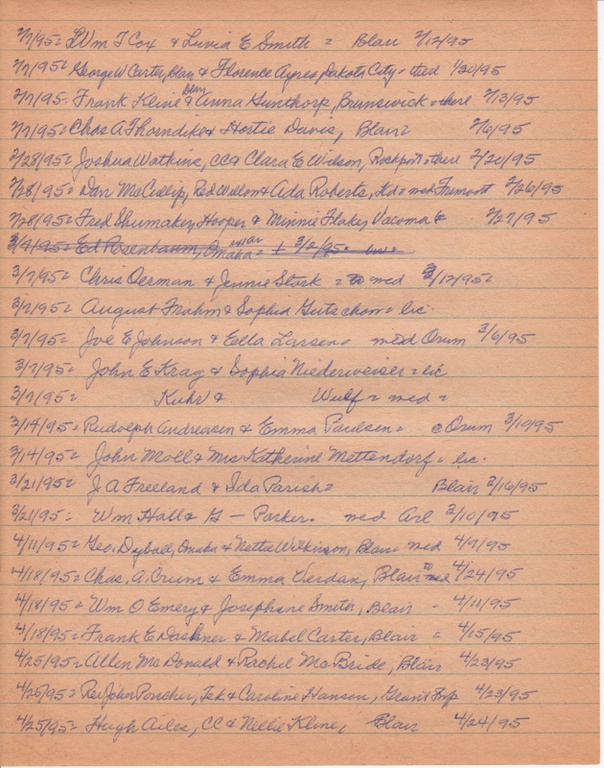 2/7/95= Wm T Cox & Luvia E Smith = Blair 2/12/95
2/7/95= George W Carter, Blair & Florence Ayres Dakota City = there 1/30/95
2/7/95= Frank Kline Blair & Anna Gunthorp, Brunswick = there 2/13/95
2/7/95= Chas A Thorndike & Hortie Davis, Blair = 2/6/95
2/28/95= Joshua Watkins, CC & Clara E Wilson, Rockport = there 2/20/95
2/28/95= Dan McCuilip, Red Willow & Ada Roberts, Kd = med Fremont 2/26/95
2/28/95= Fred Shumaker, Hooper & Minnie Flake, Vacoma = 2/27/95
3/4/95= Ed Rosenbaum, Omaha = & 3/2/95 =
3/7/95= Chris Oerman & Jennie Stork = to med 3/12/95=
3/7/95= August Frahm & Sophia Gutschow = lic.
3/7/95= Joe E Johnson & Eella Larsen = med Orum 3/6/95
3/7/95= John E Krag & Sophia Niederweiser = lic
3/7/95= Kuhr & Wulf = med =
3/14/95= Rudolph Andreasen & Emma Paulsen = Orum 3/10/95
3/14/95= John Moll & Mrs Katherine Mettendorf = lic.
3/21/95= J A Freeland & Ida Parish = Blair 3/16/95
3/21/95= Wm Hall & G — Parker = med Arl 3/10/95
4/11/95= Geo. Dyball, Omaha & Netta Wilkinson, Blair = med 4/9/95
4/18/95= Chas. A. Crum & Emma Verdan, Blair to med 4/24/95
4/18/95= Wm O Emery & Josephene Smith, Blair = 4/11/95
4/18/95= Frank E Dashner & Mabel Carter, Blair = 4/15/95
4/25/95= Allen McDonald & Rachel McBride, Blair 4/23/95
4/25/95= Rev John Poucher, Tek & Caroline Hanson, Grant Twp 4/23/95
4/25/95= Hugh Ailes, CC & Nellie Kline, Blair 4/24/95